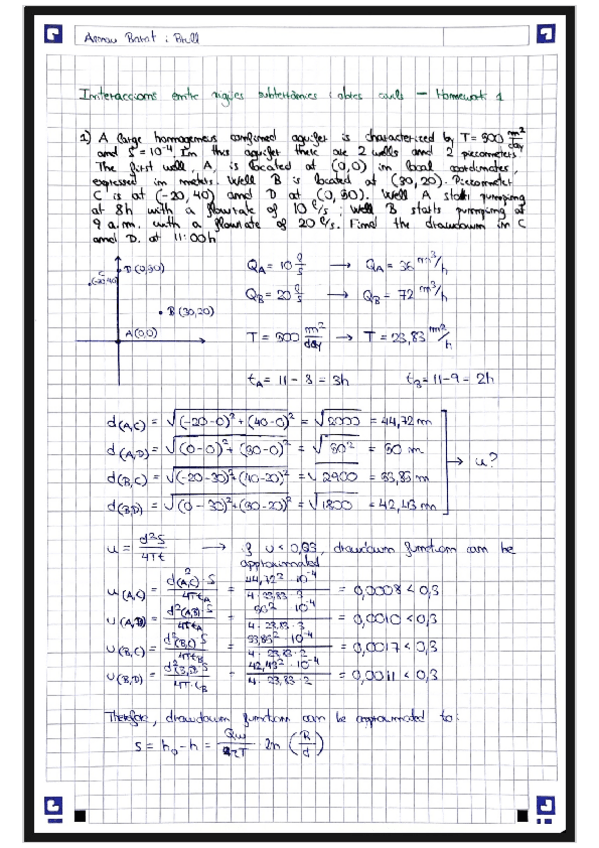 Arnau Parat i Prell
Interaccions entre aigües subterrànies i altres canls – Homework 1
1) A large homogeneus confined aquifer is characterized by T = 500 m²/day
and S = 10⁻⁴. In this aquifer there are 2 wells and 2 piezometers.
The first well, A, is located at (0,0) in local coordinates,
expressed in meters. Well B is located at (30,20). Piezometer
C is at (-20,40) and D at (0,50). Well A start pumping
at 8h with a flowrate of 10 ℓ/s; Well B starts pumping at
9 a.m. with a flowrate of 20 ℓ/s. Find the drawdown in C
and D. at 11:00h
D (0,50)
C (-20,40)
B (30,20)
A (0,0)
Q_A = 10 ℓ/s → Q_A = 36 m³/h
Q_B = 20 ℓ/s → Q_B = 72 m³/h
T = 500 m²/day → T = 23,83 m²/h
t_A = 11 - 8 = 3h t_B = 11 - 9 = 2h
d(A,C) = √((-20-0)² + (40-0)²) = √2000 = 44,72 m
d(A,D) = √((0-0)² + (50-0)²) = √50² = 50 m → u?
d(B,C) = √((-20-30)² + (40-20)²) = √2900 = 53,85 m
d(B,D) = √((0-30)² + (50-20)²) = √1800 = 42,43 m
u = d²S/4Tt → if u < 0,03, drawdown function can be
approximated
u(A,C) = d²(A,C)·S/4Tt_A = 44,72²·10⁻⁴/4·23,83·3 = 0,0008 < 0,3
u(A,D) = d²(A,D)·S/4Tt_A = 50²·10⁻⁴/4·23,83·3 = 0,0010 < 0,3
u(B,C) = d²(B,C)·S/4Tt_B = 53,85²·10⁻⁴/4·23,83·2 = 0,0017 < 0,3
u(B,D) = d²(B,D)·S/4T·t_B = 42,43²·10⁻⁴/4·23,83·2 = 0,0011 < 0,3
Therefore, drawdown function can be approximated to:
s = h₀ - h = Qw/2πT · ln (R/d)